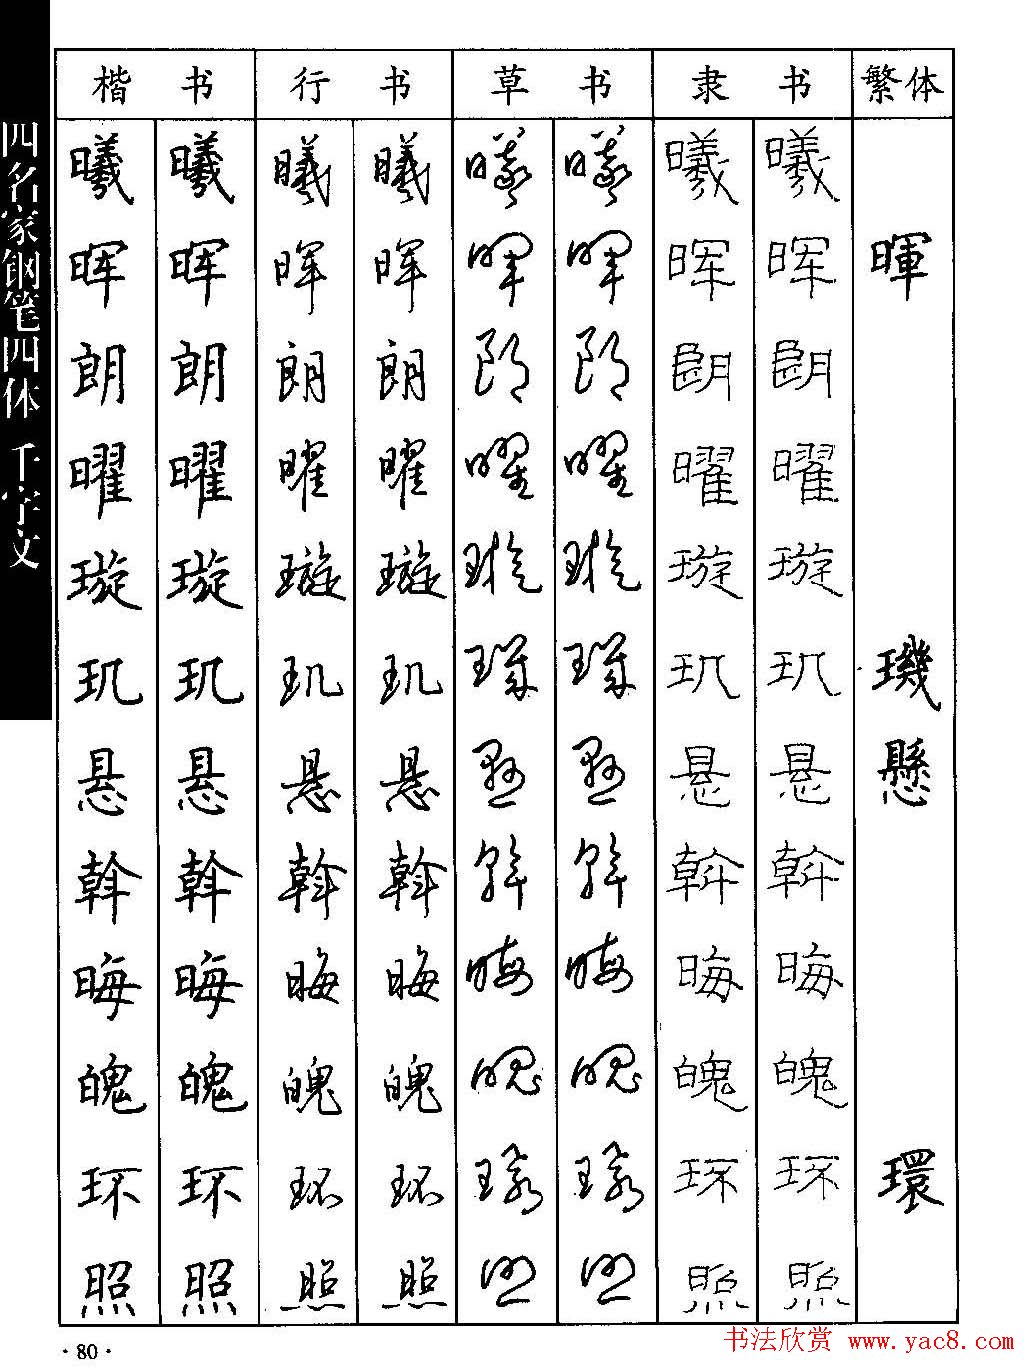 四名家钢笔四体 千字文
楷书 行书 草书 隶书 繁体
曦 曦 曦 曦 曦 曦 曦 曦
晖 晖 晖 晖 晖 晖 晖 晖 暉
朗 朗 朗 朗 朗 朗 朗 朗
曜 曜 曜 曜 曜 曜 曜 曜
璇 璇 璇 璇 璇 璇 璇 璇
玑 玑 玑 玑 玑 玑 玑 玑 璣
悬 悬 悬 悬 悬 悬 悬 悬 懸
斡 斡 斡 斡 斡 斡 斡 斡
晦 晦 晦 晦 晦 晦 晦 晦
魄 魄 魄 魄 魄 魄 魄 魄
环 环 环 环 环 环 环 环 環
照 照 照 照 照 照 照 照
·80·
书法欣赏 www.yac8.com